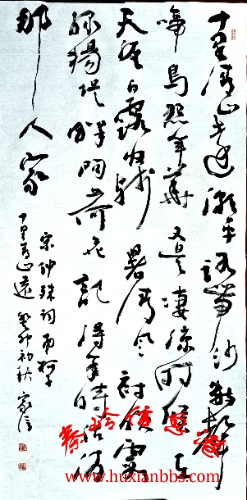 十里青山远潮平路带沙数声
啼鸟怨年华又是凄凉时候在
天涯白露收残暑清风衬晚霞
绿杨堤畔闹荷花记得年时沽酒
那人家
宋仲殊词南柯子
十里青山远 癸卯初秋
http://www.huxianbbs.com